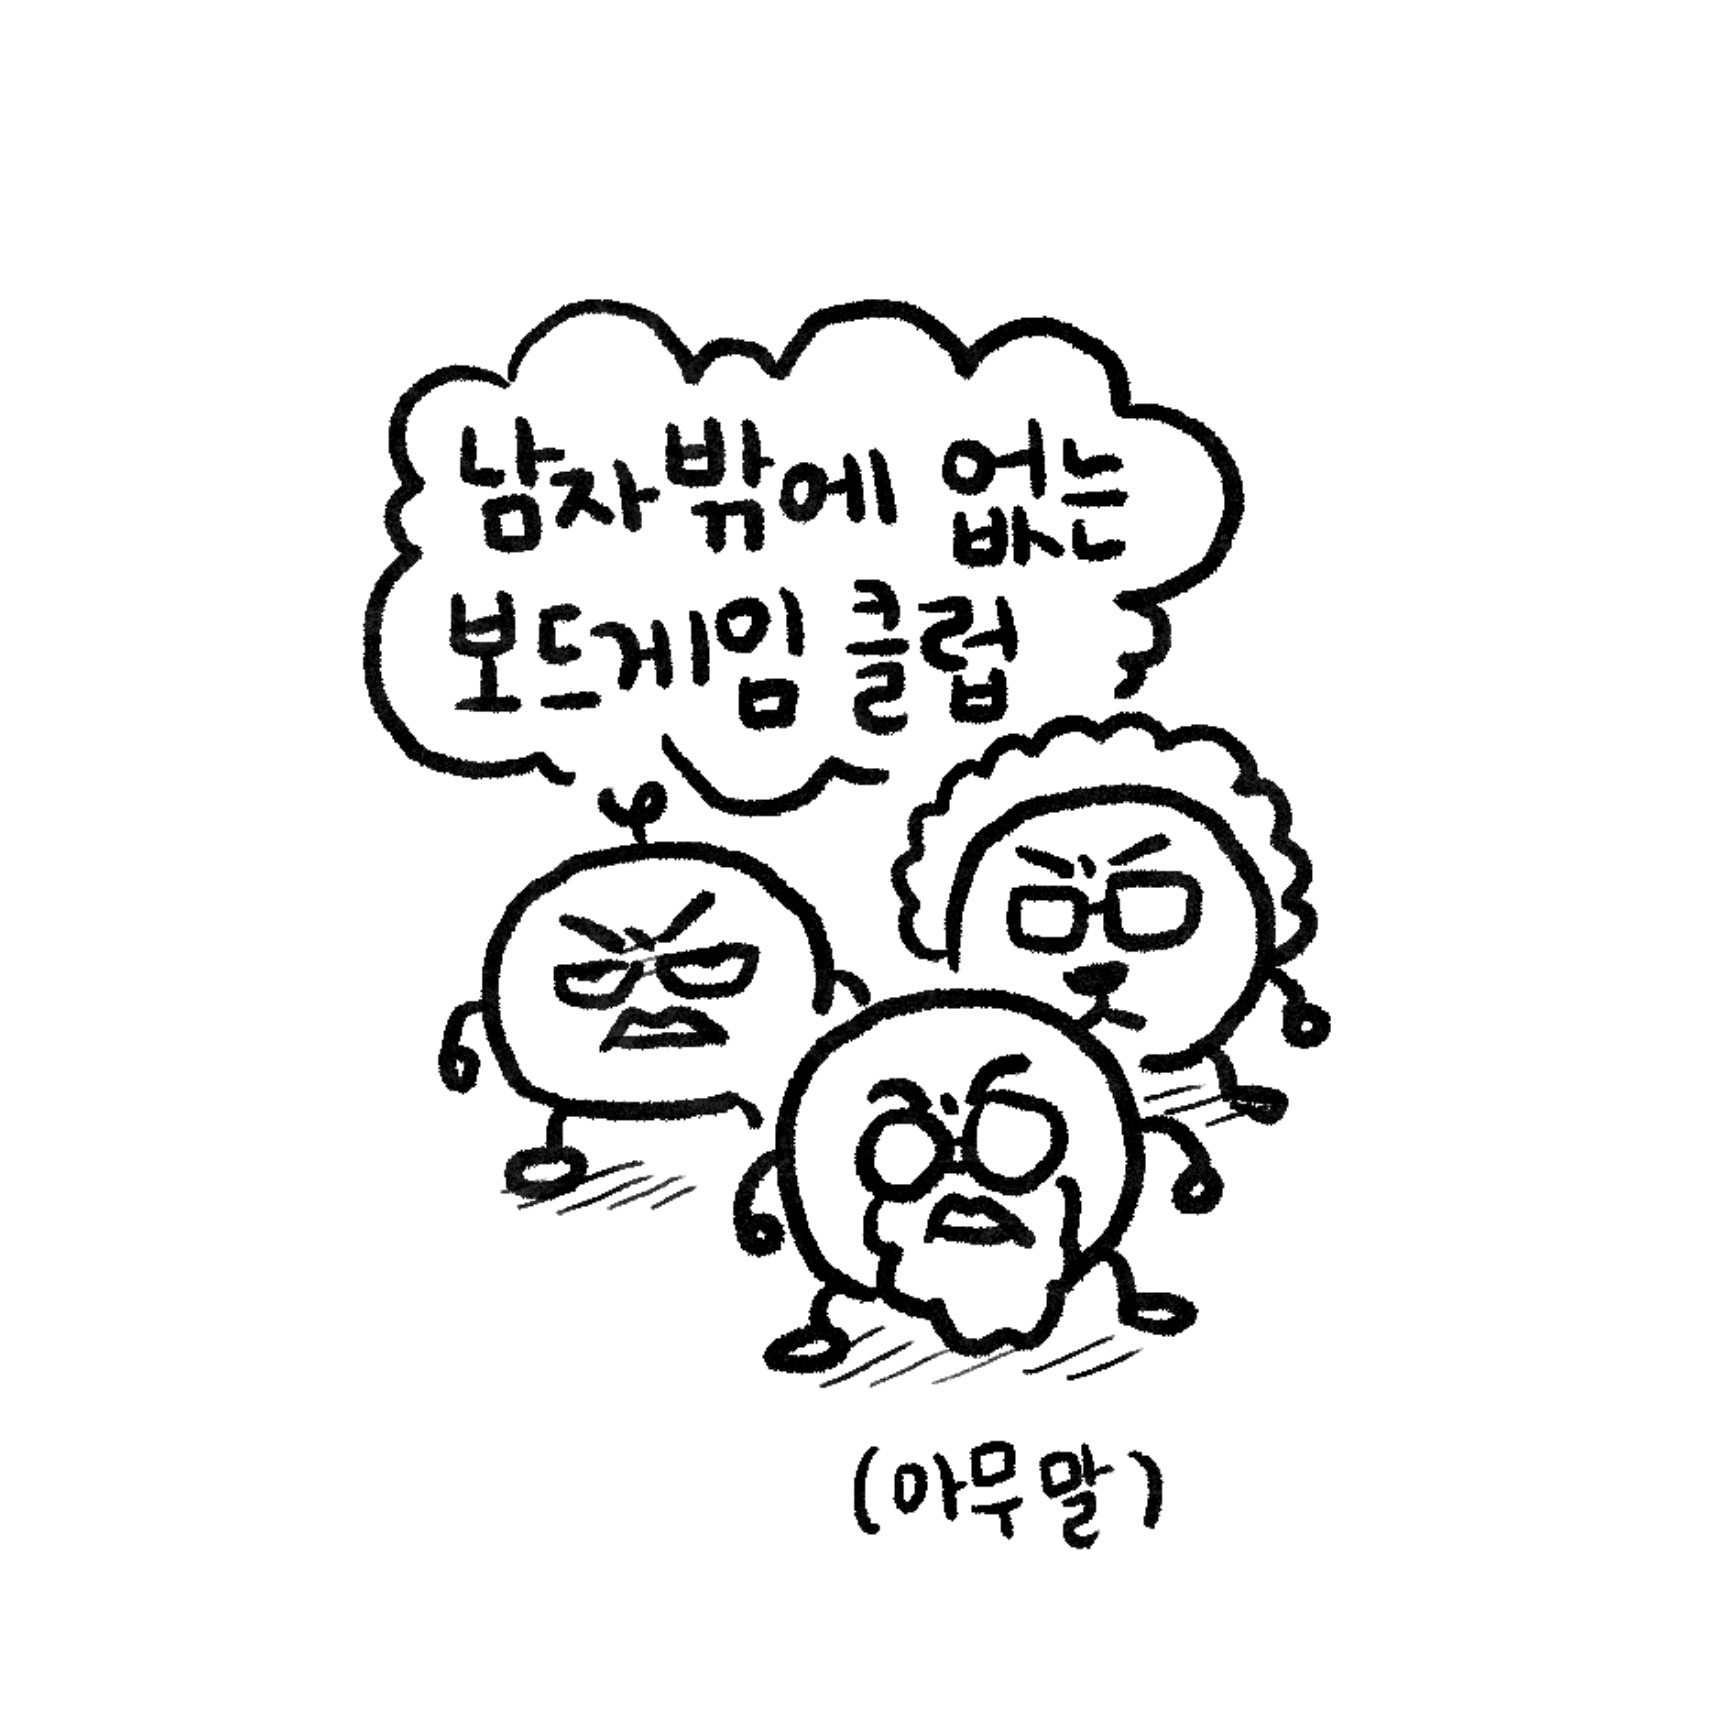 남자밖에 없는
보드게임 클럽
(아무말)